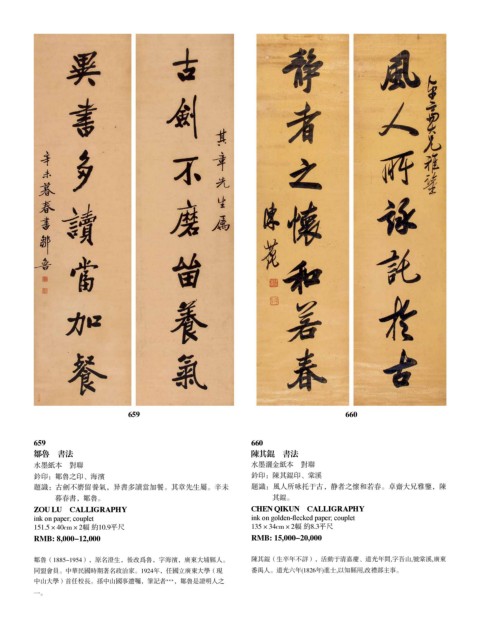 其章先生屬
古劍不磨畱養氣
異書多讀當加餐
辛未暮春書鄒魯
大兄雅鑒
風人所詠託於古
靜者之懷和若春
659
660
659
鄒魯　書法
水墨紙本　對聯
鈐印：鄒魯之印、海濱
題識：古劍不磨留養氣，异書多讀當加餐。其章先生屬。辛未
暮春書，鄒魯。
ZOU LU　CALLIGRAPHY
ink on paper; couplet
151.5 × 40cm × 2幅 約10.9平尺
RMB: 8,000–12,000
鄒魯（1885-1954），原名澄生，後改爲魯，字海濱，廣東大埔縣人。
同盟會員。中華民國時期著名政治家。1924年，任國立廣東大學（現
中山大學）首任校長。孫中山國事遺囑，筆記者***，鄒魯是證明人之
一。
660
陳其錕　書法
水墨灑金紙本　對聯
鈐印：陳其錕印、棠溪
題識：風人所咏托于古，静者之懷和若春。卓齋大兄雅鑒，陳
其錕。
CHEN QIKUN　CALLIGRAPHY
ink on golden-flecked paper; couplet
135 × 34cm × 2幅 約8.3平尺
RMB: 15,000–20,000
陳其錕（生卒年不詳），活動于清嘉慶、道光年間,字吾山,號棠溪,廣東
番禺人。道光六年(1826年)進士,以知縣用,改禮部主事。